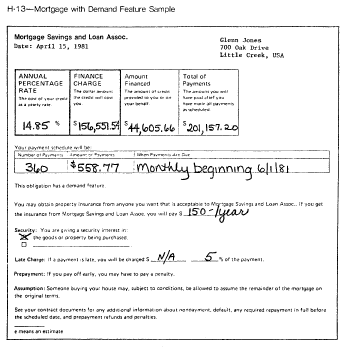 H-13—Mortgage with Demand Feature Sample
Mortgage Savings and Loan Assoc.
Date: April 15, 1981
Glenn Jones
700 Oak Drive
Little Creek, USA
ANNUAL PERCENTAGE RATE
The cost of your credit as a yearly rate.
14.85 %
FINANCE CHARGE
The dollar amount the credit will cost you.
$156,551.54
Amount Financed
The amount of credit provided to you or on your behalf.
$44,605.66
Total of Payments
The amount you will have paid after you have made all payments as scheduled.
$201,157.20
Your payment schedule will be:
Number of Payments Amount of Payments When Payments Are Due
360 $558.77 Monthly beginning 6/1/81
This obligation has a demand feature.
You may obtain property insurance from anyone you want that is acceptable to Mortgage Savings and Loan Assoc.. If you get
the insurance from Mortgage Savings and Loan Assoc. you will pay $ 150-/year
Security: You are giving a security interest in:
the goods or property being purchased.
Late Charge: If a payment is late, you will be charged $ N/A 5 % of the payment.
Prepayment: If you pay off early, you may have to pay a penalty.
Assumption: Someone buying your house may, subject to conditions, be allowed to assume the remainder of the mortgage on
the original terms.
See your contract documents for any additional information about nonpayment, default, any required repayment in full before
the scheduled date, and prepayment refunds and penalties.
e means an estimate